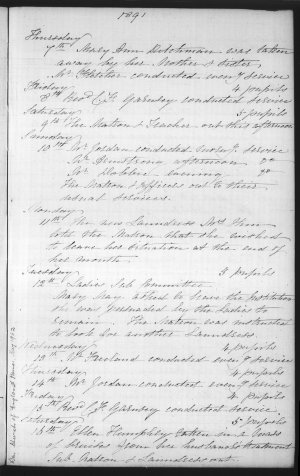 1891
Thursday
7th Mary Ann Dutchman was taken
away by her Mother & sister
Mr Fletcher conducted eveng service
Friday 4 pupils
8th Revd C.F. Garnsey conducted service
Saturday 5 pupils
9th The Matron & Teacher out this afternoon
Sunday
10th Mr Jordan conducted morng service
Mr Armstrong afternoon do
Mr Dobbie evening do
The Matron & Officers out to their
usual services.
Monday
11th The new Laundress Mrs
told the Matron that she wished
to leave her situation at the end of
her month
Tuesday 5 pupils
12th Ladies Sub Committee
Mary May asked to leave the institution
she was persuaded by the Ladies to
remain. The Matron was instructed
to look for another Laundress
Wednesday 4 pupils
13th Mr conducted eveng service
Thursday 4 pupils
14th Mr Jordan conducted eveng service
Friday 4 pupils
15th Revd C.F. Garnsey conducted service
Saturday 5 pupils
16th Ellen Humphrey taken in 2 years
from her husband's treatment
Sub Matron & Laundress out.